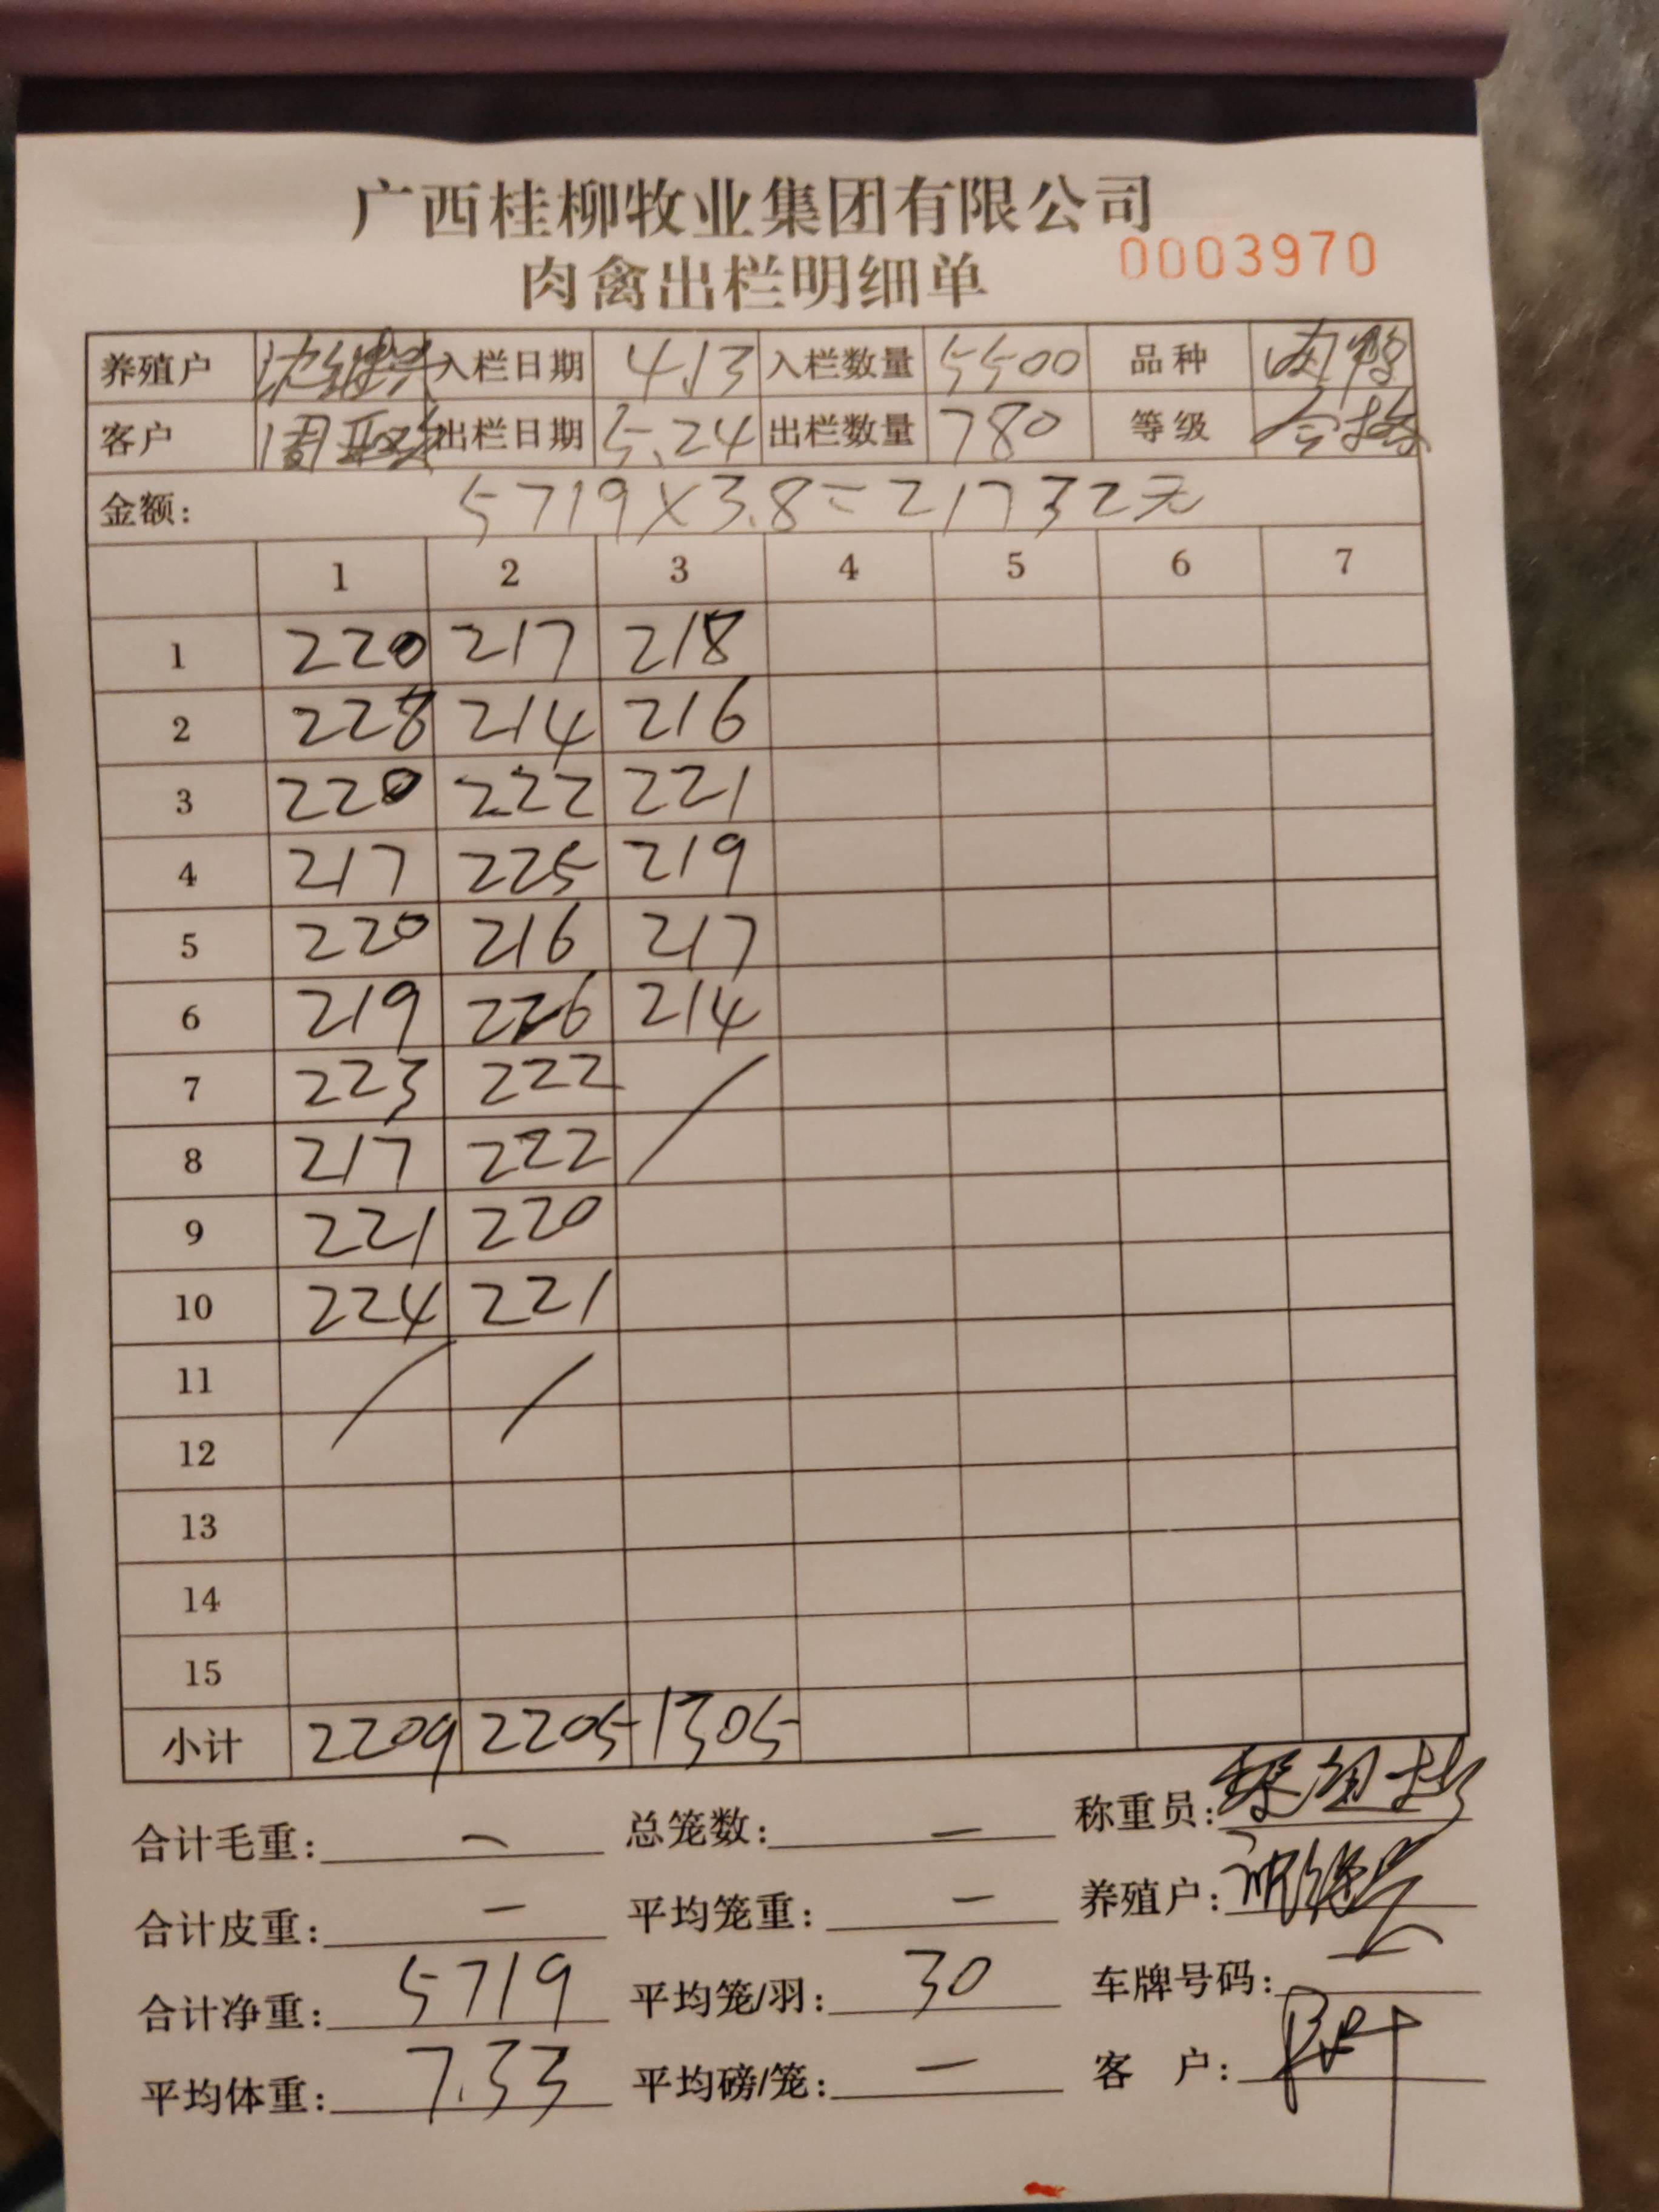 广西桂柳牧业集团有限公司
肉禽出栏明细单 0003970
养殖户 沈继兴 入栏日期 4.13 入栏数量 5500 品种 肉鸭
客户 周 出栏日期 5.24 出栏数量 780 等级 合格
金额: 5719×3.8=21732元
1 2 3 4 5 6 7
1 220 217 218
2 228 214 216
3 220 222 221
4 217 225 219
5 220 216 217
6 219 226 214
7 223 222
8 217 222
9 221 220
10 224 221
11
12
13
14
15
小计 2209 2205 1305
合计毛重: — 总笼数: — 称重员:
合计皮重: — 平均笼重: — 养殖户: 沈继兴
合计净重: 5719 平均笼/羽: 30 车牌号码:
平均体重: 7.33 平均磅/笼: — 客户: